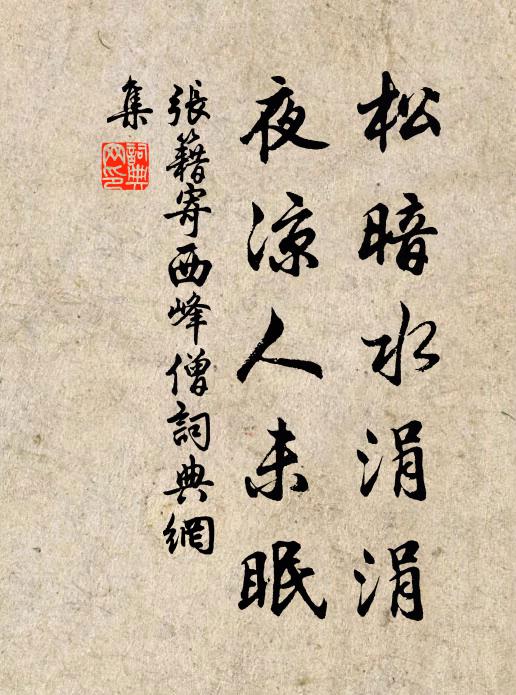 松暗水涓涓
夜涼人未眠
張籍寄西峰僧詞典網
集
詞典
网印